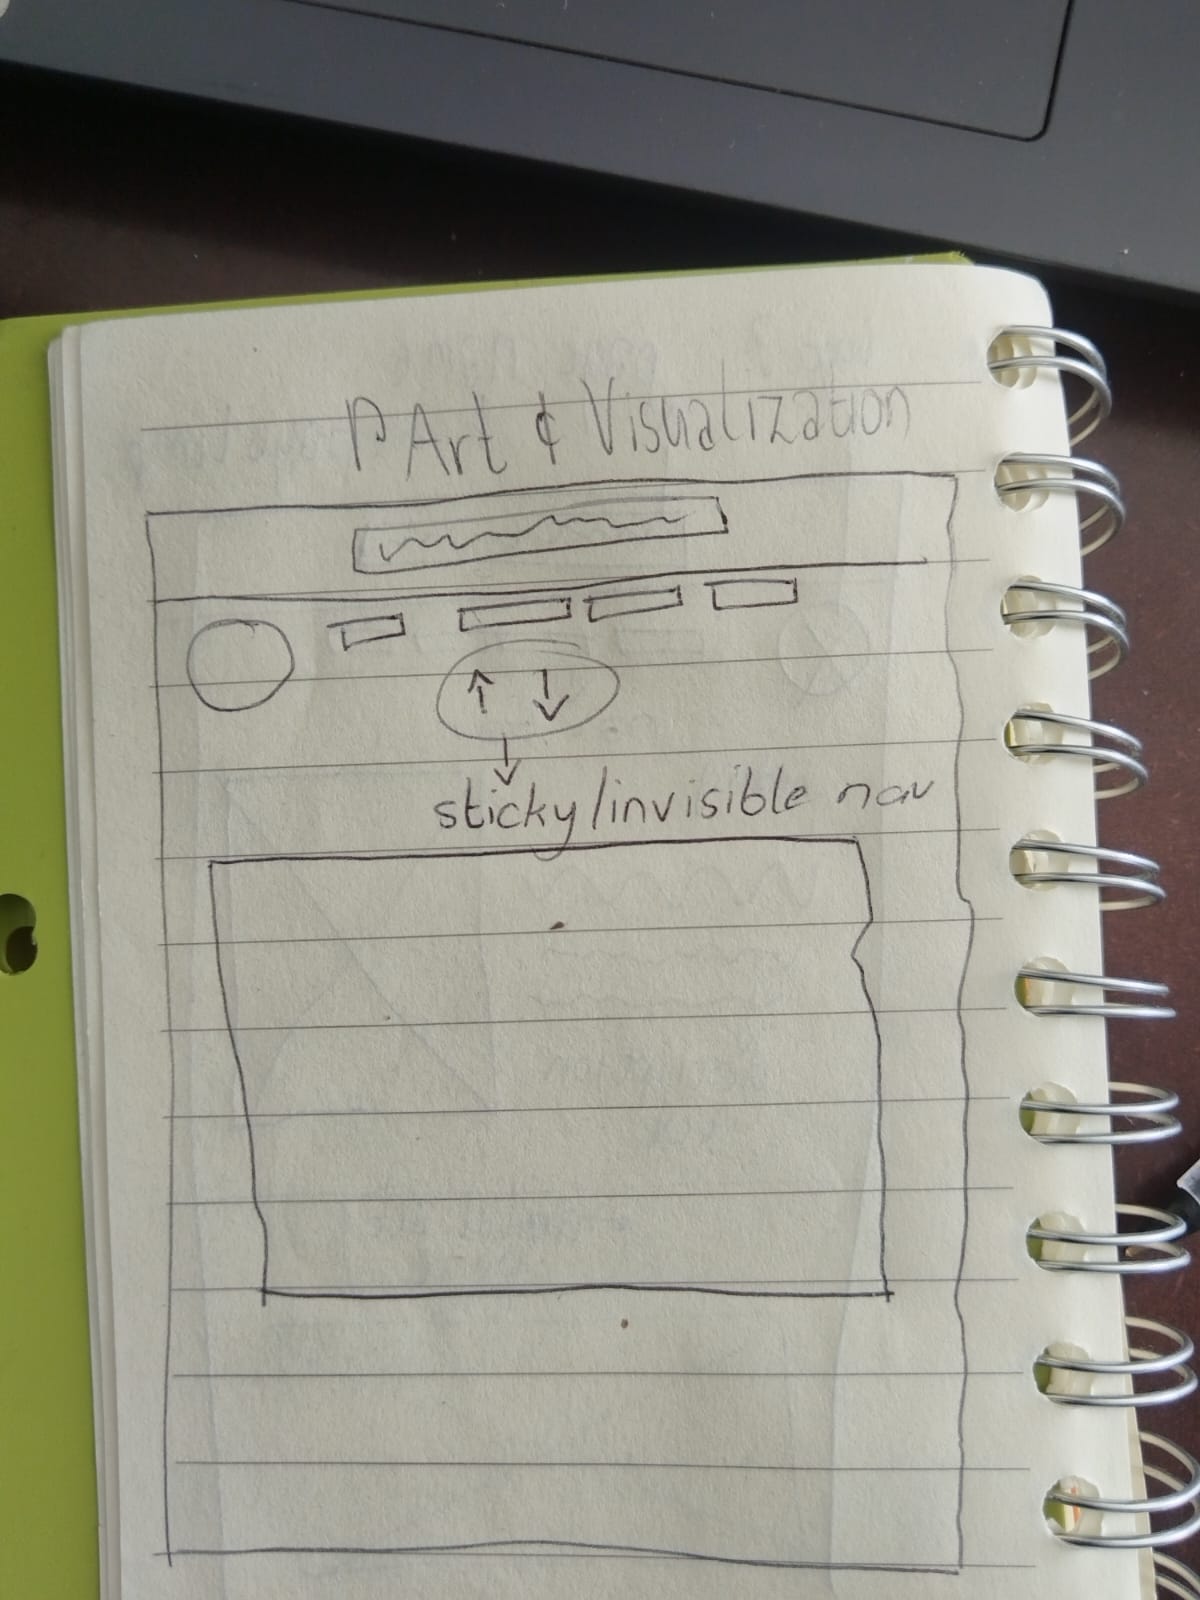 Art & Visualization
↑ ↓
sticky/invisible nav